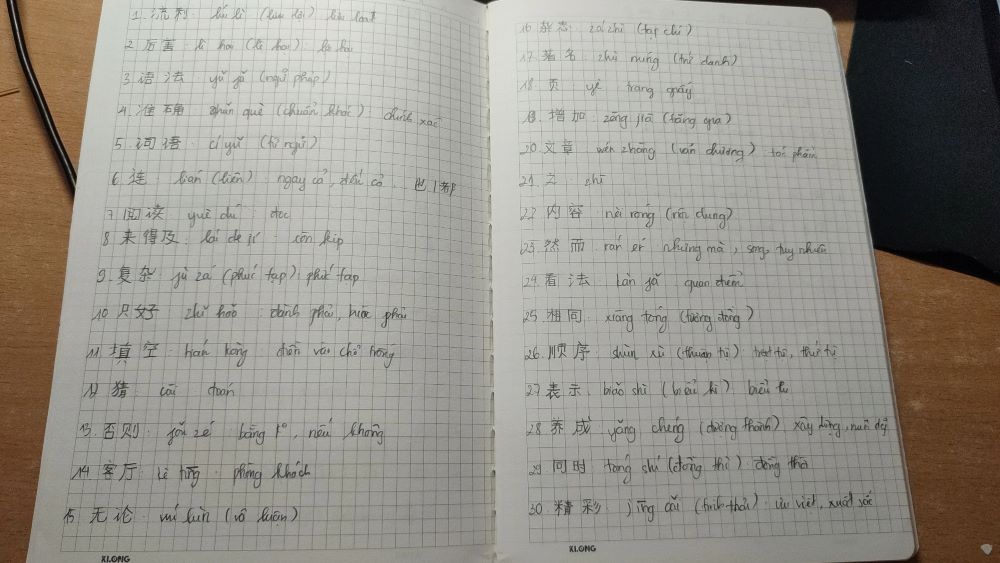 1. 流利: liú lì (lưu lợi) lưu loát
2. 厉害: lì hai (lì hại) lợi hại
3. 语法 yǔ fǎ (ngữ pháp)
4. 准确 zhǔn què (chuẩn khác) chính xác
5. 词语: cí yǔ (từ ngữ)
6. 连: lián (liên) ngay cả, đến cả ... 也 / 都
7. 阅读: yuè dú: đọc
8. 来得及: lái de jí: còn kịp
9. 复杂: fù zá (phức tạp) phức tạp
10. 只好: zhǐ hǎo: đành phải, buộc phải
11. 填空: tián kòng: điền vào chỗ trống
12. 猜: cāi đoán
13. 否则: fǒu zé: bằng ko, nếu không
14. 客厅: kè tīng: phòng khách
15. 无论: wú lùn (vô luận)
XLONG
16 杂志: zá zhì (tạp chí)
17. 著名: zhù míng (trứ danh)
18. 页 yè trang giấy
19. 增加: zēng jiā (tăng gia)
20. 文章: wén zhāng (văn chương) tác phẩm
21. 之 zhī
22. 内容: nèi róng (nội dung)
23. 然而: rán ér nhưng mà, song, tuy nhiên
24. 看法 kàn fǎ quan điểm
25. 相同: xiāng tóng (tương đồng)
26. 顺序: shùn xù (thuận tự) trật tự, thứ tự
27. 表示: biǎo shì (biểu thị) biểu thị
28 养成 yǎng chéng (dưỡng thành) xây dựng, nuôi dạy
29 同时: tóng shí (đồng thì): đồng thời
30. 精彩: jīng cǎi (tinh thải): ưu việt, xuất sắc
XLONG